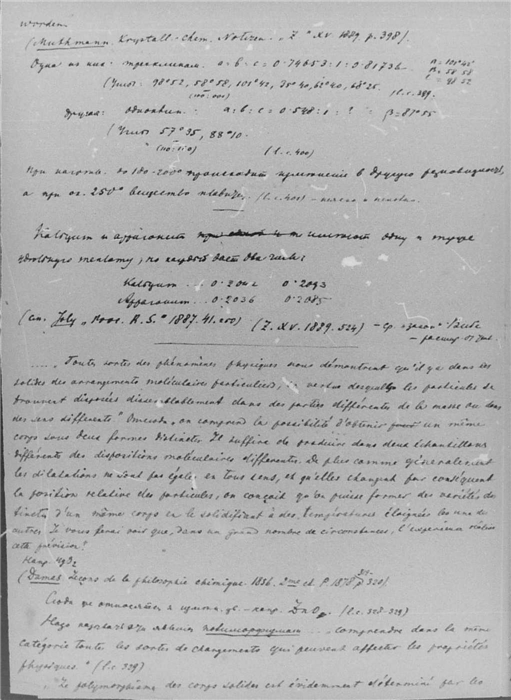 worden.
(Muthmann. Krystall.-chem. Notizen. „Z" XV. 1889. p. 398).
Одна из них триклинич. a : b : c = 0.74653 : 1 : 0.81736.
(Углы: 98°52, 58°58, 101°42, 75°40, 65°40, 68°25.
l. c. 399.
другая: одноклин. a : b : c = 0.548 : 1 : ? β = 81°55
(Углы 57°35, 88°10.
(l. c. 400)
При нагрев. до 180-200° происходит в другую разновидность,
а при ок. 250° вещество плавится. (l. c. 400)
Кальцит и аррагонит имеют одну и ту же
удельную теплоту, но каждый дает два числа:
Кальцит ... 0.2042 0.2093
Аррагонит ... 0.2036 0.2085
(см. Joly „Proc. R. S." 1887. 41. 250) (Z. XV. 1889. 524)
..... „Toutes sortes des phénomènes physiques nous démontrent qu'il y a dans les
solides des arrangements moléculaires particuliers, en vertu desquels les particules se
trouvent disposées dissemblablement dans des parties différentes de la masse ou dans
des sens différents". Omissis „on comprend la possibilité d'obtenir un même
corps sous deux formes distinctes. Il suffira de produire dans deux échantillons
différents des dispositions moléculaires différentes. De plus comme généralement
les dilatations ne sont pas égales en tous sens, et qu'elles changent par conséquent
la position relative des particules, on conçait qu'on puisse former des variétés dis-
tinctes d'un même corps en le solidifiant à des températures éloignées les unes des
autres. Je vous ferai voir que, dans un grand nombre de circonstances, l'expérience réalise
cette prévision".
Напр. HgJ₂
(Dumas. Leçons de la philosophie chimique. 1836. 2me ed. P. 1878. p. 320)
Сюда же относятся - напр. (l. c. 328-329)
Надо эти явления полиморфизмом ... „comprendre dans la même
catégorie toutes les sortes de changements qui peuvent affecter les propriétés
physiques." (l. c. 329)
„Le polymorphisme des corps solides est évidemment déterminé par les